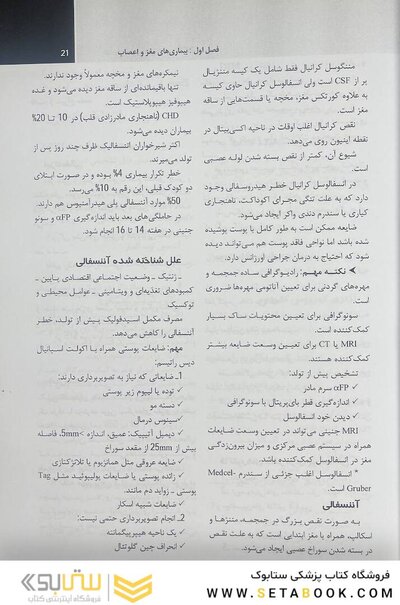 فصل اول . بیماری‌های مغز و اعصاب
21
مننگوسل کرانیال فقط شامل یک کیسه مننژیال
پر از CSF است ولی انسفالوسل کرانیال حاوی کیسه
به علاوه کورتکس مغز، مخچه یا قسمت‌هایی از ساقه
مغز است.
نقص کرانیال اغلب اوقات در ناحیه اکسی‌پیتال در
نقطه اینیون روی می‌دهد.
شیوع آن، کمتر از نقص بسته شدن لوله عصبی
است.
در انسفالوسل کرانیال خطر هیدروسفالی وجود
دارد که به علت تنگی مجرای اکوداکت، ناهنجاری
کیاری یا سندرم دندی واکر ایجاد می‌شود.
ضایعه ممکن است به طور کامل با پوست پوشیده
شده باشد اما نواحی فاقد پوست هم می‌تواند دیده
شود که احتیاج به درمان جراحی اورژانس دارد.
➤ نکته مهم: رادیوگرافی ساده جمجمه و
مهره‌های گردنی برای تعیین آناتومی مهره‌ها ضروری
است.
سونوگرافی برای تعیین محتویات ساک بسیار
کمک‌کننده است.
MRI یا CT برای تعیین وسعت ضایعه بیشتر
کمک‌کننده هستند.
تشخیص پیش از تولد:
✓ αFP سرم مادر
✓ اندازه‌گیری قطر بای‌پریتال با سونوگرافی
✓ دیدن خود انسفالوسل
MRI جنینی می‌تواند در تعیین وسعت ضایعات
همراه در سیستم عصبی مرکزی و میزان بیرون‌زدگی
مغز در انسفالوسل کمک‌کننده باشد.
* انسفالوسل اغلب جزئی از سندرم Medcel-
Gruber است.
آننسفالی
به صورت نقص بزرگ در جمجمه، مننژها و
اسکالپ، همراه با مغز ابتدایی است که به علت نقص
در بسته شدن سوراخ عصبی ایجاد می‌شود.
نیمکره‌های مغز و مخچه معمولاً وجود ندارند.
تنها باقیمانده‌ای از ساقه مغز دیده می‌شود و غده
هیپوفیز هیپوپلاستیک است.
CHD (ناهنجاری مادرزادی قلب) در 10 تا 20%
بیماران دیده می‌شود.
اکثر شیرخواران آننسفالیک ظرف چند روز پس از
تولد می‌میرند.
خطر تکرار بیماری 4% بوده و در صورت ابتلای
دو کودک قبلی، این رقم به 10% می‌رسد.
50% موارد آننسفالی پلی هیدرآمنیوس هم دارند.
در حاملگی‌های بعد باید اندازه‌گیری αFP و سونو
جنینی در هفته 14 تا 16 انجام شود.
علل شناخته شده آننسفالی
- ژنتیک - وضعیت اجتماعی اقتصادی پایین -
کمبودهای تغذیه‌ای و ویتامینی - عوامل محیطی و
توکسیک
مصرف مکمل اسیدفولیک پیش از تولد، خطر
آننسفالی را کاهش می‌دهد.
مهم: ضایعات پوستی همراه با اکولت اسپاینال
دیس رافیسم:
1ـ ضایعاتی که نیاز به تصویربرداری دارند:
✓ توده یا لیپوم زیر پوستی
✓ دسته مو
✓ سینوس درمال
✓ دیمپل آتیپیک: عمیق، اندازه >5mm، فاصله
بیش از 25mm از مقعد سوراخ
✓ ضایعه عروقی مثل همانژیوم یا تلانژکتازی
✓ زائده پوستی یا ضایعات پولیپوئید مثل Tag
پوستی ـ زواید دم مانند.
✓ ضایعات شبیه اسکار
2ـ انجام تصویربرداری حتمی نیست:
✓ یک ناحیه هیپرپیگمانته
✓ انحراف چین گلوتئال
فروشگاه کتاب پزشکی ستابوک
WWW.SETABOOK.COM
ستابوک
فروشگاه اینترنتی کتاب